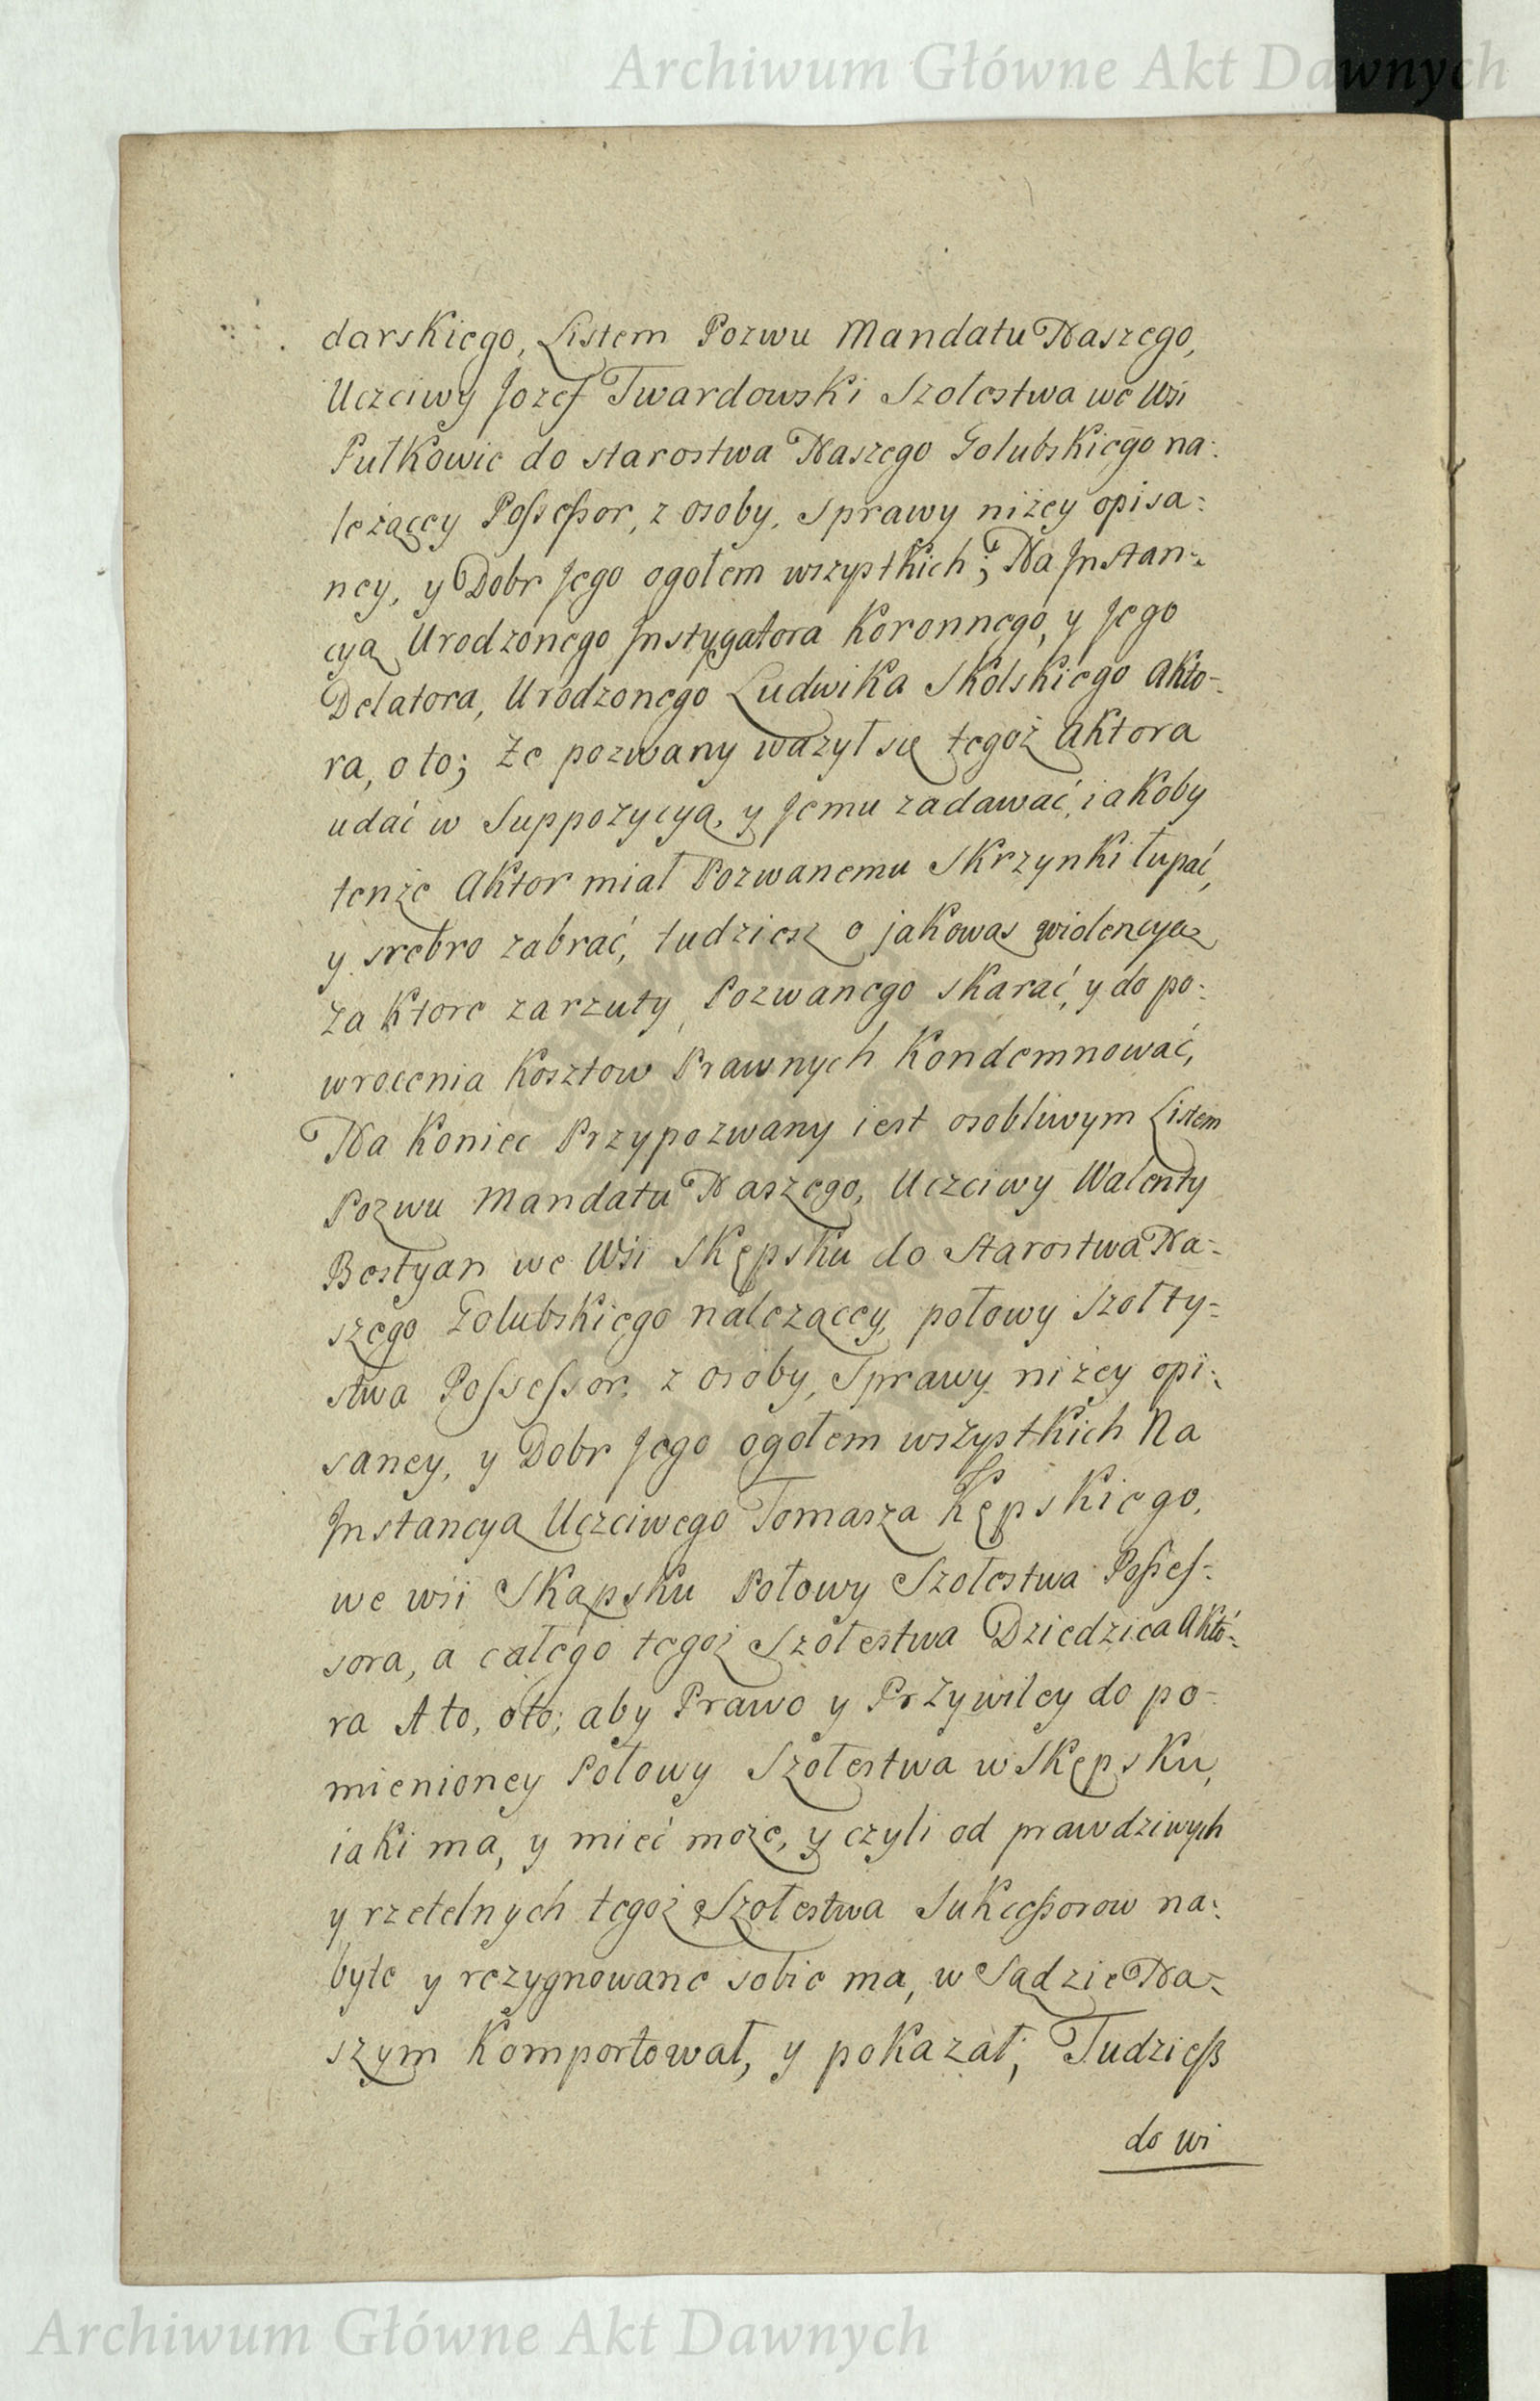 Archiwum Główne Akt Dawnych
darskiego, Listem Pozwu Mandatu Naszego,
Uczciwy Jozef Twardowski Szolestwa we Wsi
Pułkowie do starostwa Naszego Golubskiego na:
leżący Possessor, z osoby, Sprawy niżey opisa:
ney, y Dobr Jego ogołem wszystkich; Na Jnstan:
cyą Urodzonego Jnstygatora Koronnego, y Jego
Delatora, Urodzonego Ludwika Skolskiego Akto-
ra, o to; że pozwany ważył się tegoż Aktora
udać w Suppozycyą, y Jemu zadawać, iakoby
tenże Aktor miał Pozwanemu Skrzynki łupać,
y srebro zabrać, tudziesz o jakowas widencyą
za ktore zarzuty, Pozwanego skarać, y do po:
wrocenia Kosztow Prawnych Kondemnować,
Na Koniec Przypozwany iest osobliwym Listem
Pozwu Mandatu Naszego, Uczciwy Walenty
Bestyan we Wsi Skępsku do Starostwa Na:
szego Golubskiego nalezący, połowy Szołty:
stwa Possessor, z osoby, Sprawy niżey opi:
saney, y Dobr Jego ogołem wszystkich Na
Jnstancyą Uczciwego Tomasza Kępskiego,
we wsi Skąpsku Połowy Szołestwa Posses:
sora, a całego tegoż Szołestwa Dziedzica Akto:
ra A to, oto; aby Prawo y Przywiley do po-
mienioney Połowy Szołestwa w Skępsku,
iaki ma, y mieć może, y czyli od prawdziwych
y rzetelnych tegoż Szołestwa Sukcessorow na:
byłe y rezygnowane sobie ma, w Sądzie Na:
szym Komportował, y pokazał; Tudziesz
do wi
Archiwum Główne Akt Dawnych